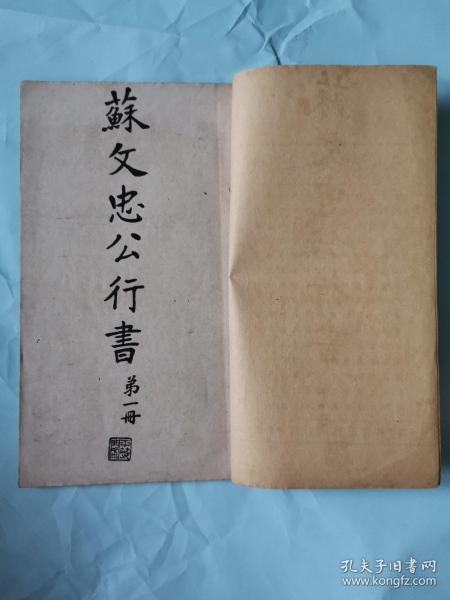 蘇文忠公行書
第一冊
孔夫子旧书网
www.kongfz.com